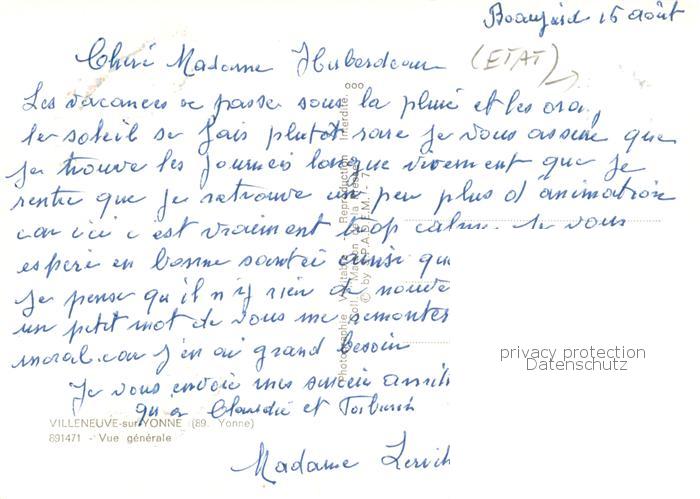 15 août
Chère Madame (ETAT)
Les vacances se passe sous la pluie et les
le soleil se fais plutot rare je vous assure que
je trouve les journeis longue vivement que je
rentre que je retrouve un peu plus d'animation
car ici c est vraiment trop calme. Je vous
espère en bonne santéi ainsi que
je pense qu'il n'y rien de nouve
un petit mot de vous me remonter
moral. car j'en ai grand besoin
Je vous envoie mes
et
Madame
VILLENEUVE-sur-YONNE (89. Yonne)
891471 - Vue générale
Reproduction Interdite.
privacy protection
Datenschutz